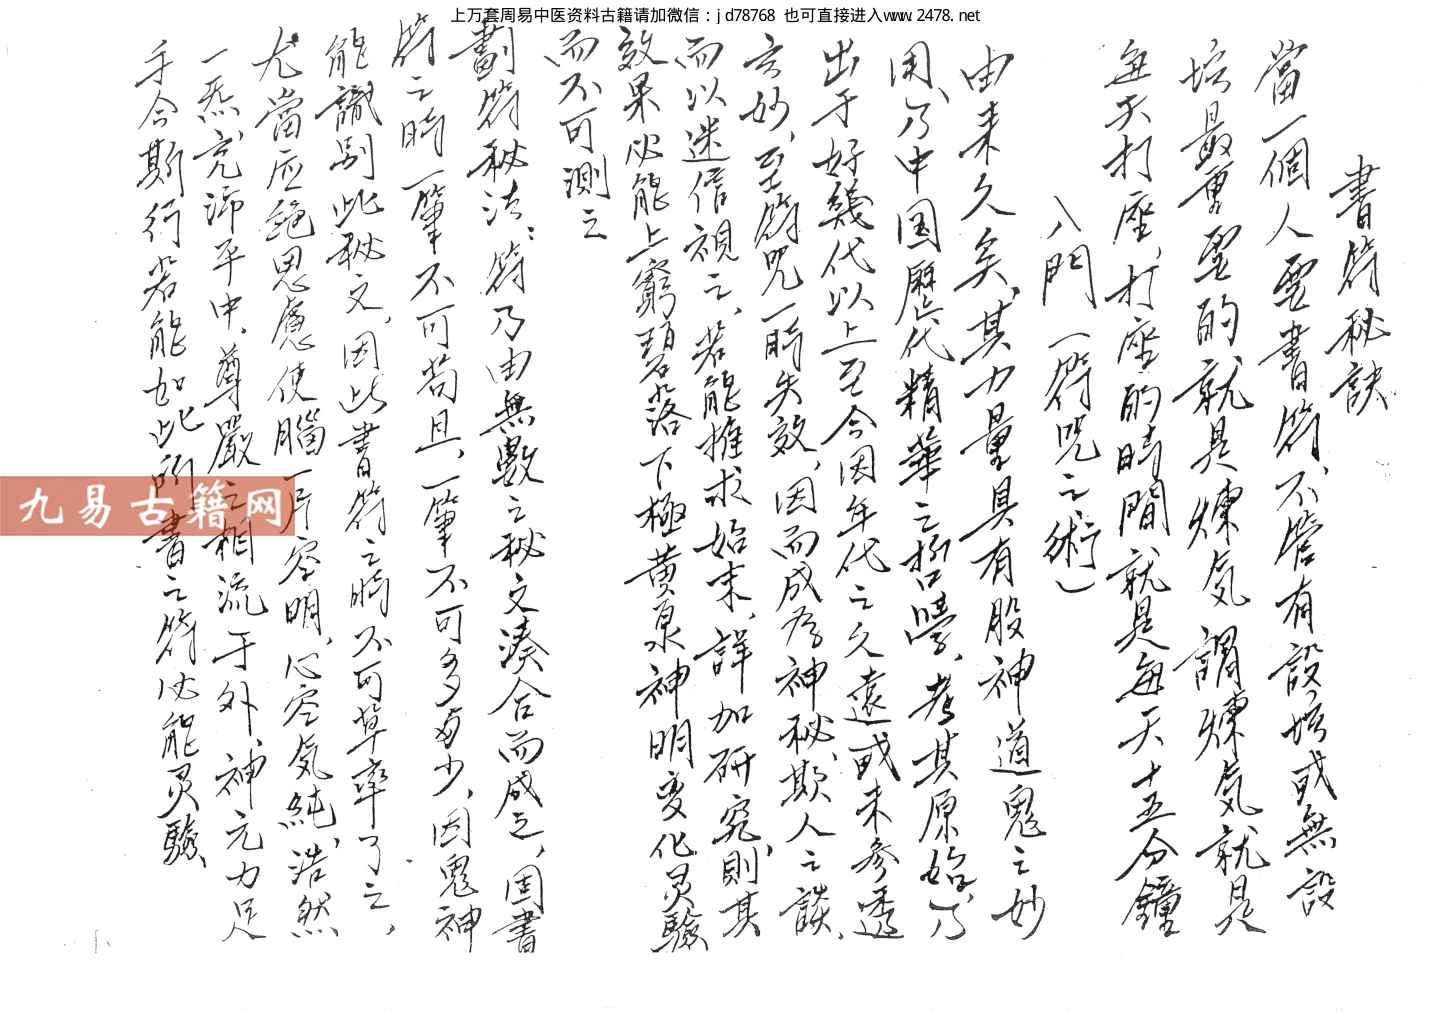 上万套周易中医资料古籍请加微信：jd78768 也可直接进入www.2478.net
書符秘訣
當一個人要書符、不管有設壇或無設
壇最重要的就是煉気謂煉気就是
每天打座，打座的時間就是每天十五分鐘
入門（符咒之術）
由来久矣，其力量具有股神道鬼之妙
用、乃中国歷代精華之哲學，考其原始，乃
出于好幾代以上至今因年代之久遠或未参透
玄妙，至符咒一時失效，因而成為神秘、欺人之談，
而以迷信視之，若能推求始末，詳加研究，則其
效果必能上窮碧落下極黄泉神明变化灵驗
而不可測之
劃符秘法：符乃由無數之秘文湊合而成之，固書
符之時一筆不可苟且，一筆不可多與少，因鬼神
能識别此秘文，因此書符之時不可草率了之，
尤當应絶思慮使腦一片空明，心空気純，浩然
一炁，充沛平中，尊嚴之相流于外，神元力足
手令斯行若能如此所書之符必能灵驗、
九易古籍网